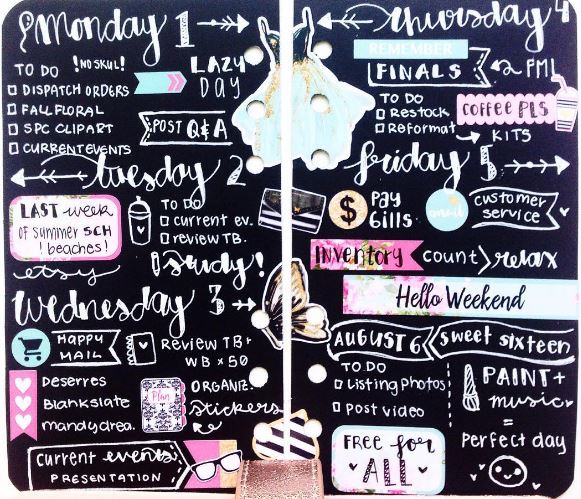 Monday 1
TO DO
!NO SKUL!
LAZY
DAY
DISPATCH ORDERS
FALL FLORAL
SPC CLIPART
CURRENT EVENTS
POST Q&A
tuesday 2
LAST week
OF summer SCH
! beaches!
TO DO
current ev.
review TB.
etsy
Study!
Wednesday 3
HAPPY
MAIL
Review TB+
WB x 50
Deserres
Blankslate
mandydrea.
Plan
ORGANIZE
Stickers
current events
PRESENTATION
thursday 4
REMEMBER
FINALS
2 PM!
TO DO
Restock
Reformat
KITS
COFFEE PLS
friday 5
$
PAY
Bills
mail
customer
service
Inventory count
relax
Hello Weekend
AUGUST 6
sweet sixteen
TO DO
Listing Photos
Post video
PAINT +
music
=
Perfect day
FREE for
ALL